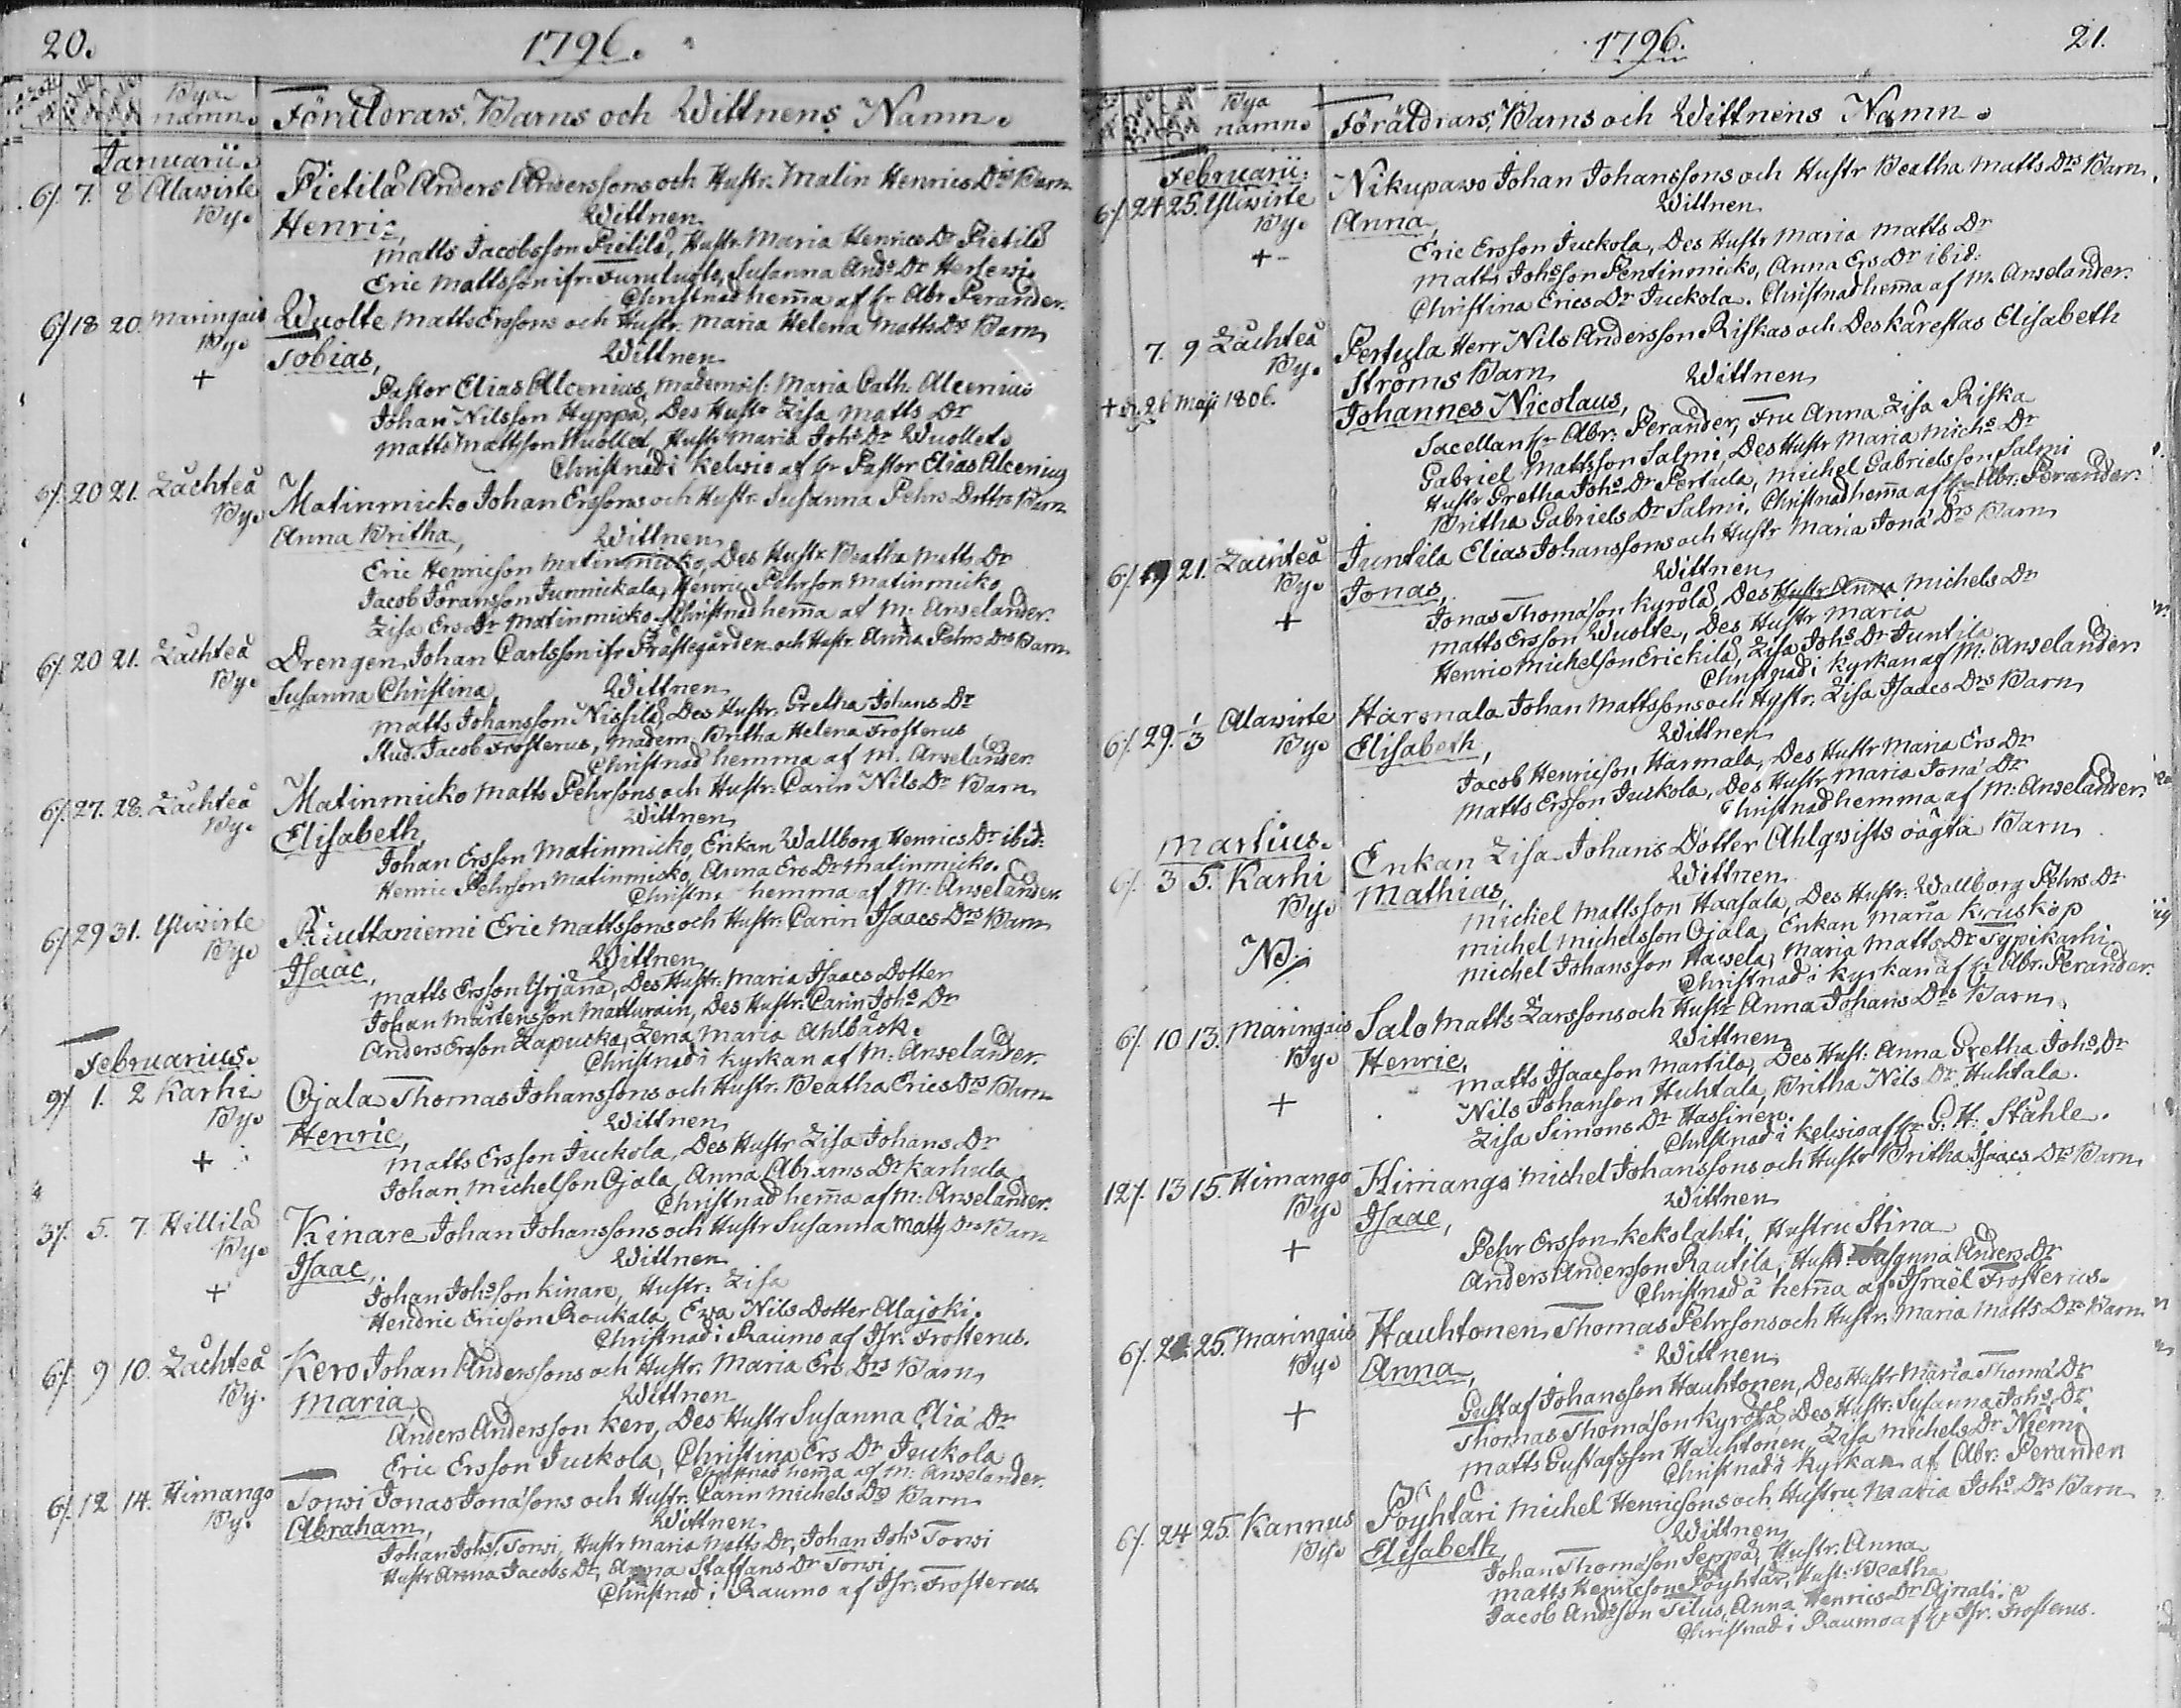 20.
1796.
Bya namn.
Föräldrars, Barns och Wittnens Namn.
Januarii.
6/. 7. 8 Alawirte By.
Pietilä Anders Anderssons och Hustr. Malin Henrics Drs Barn
Henric, Wittnen
Matts Jacobsson Pietilä, Hustr. Maria Henrics Dr Pietilä
Eric Mattsson ifr. Susanna Ands Dr
Christnad hemma af Hr Abr Perander.
6/. 18 20. Maringais By.
Wuolte Matts Erssons och Hustr. Maria Helena Matts Drs Barn
Tobias, Wittnen
+
Pastor Elias Alcenius, Mademois: Maria Cath. Alcenius
Johan Nilsson Hyppä, Des Hustr Lisa Matts Dr
Matts Mattsson Wuollet, Hustr Maria Johs Dr Wuollet.
Christnad i Kelwio af Hr Pastor Elias Alcenius
6/. 20 21. Låchteå By.
Matinmicko Johan Erssons och Hustr. Susanna Pehrs Dottrs Barn
Anna Britha, Wittnen
Eric Henricson Matinmicko, Des Hustr Beatha Matts Dr
Jacob Jöransson Junnickala, Henric Pehrson Matinmicko
Lisa Ers Dr Matinmicko. Christnad hemma af M. Anselander.
6/. 20 21. Låchteå By.
Drengen Johan Carlsson ifr Prästegården och Hustr. Anna Pehrs Drs Barn
Susanna Christina Wittnen
Matts Johansson Nissilä, Des Hustr. Gretha Johans Dr
Stud. Jacob Frosterus, Madem. Britha Helena Frosterus
Christnad hemma af M. Anselander.
6/. 27. 28. Låchteå By.
Matinmicko Matts Pehrsons och Hustr. Carin Nils Dr Barn
Elisabeth, Wittnen
Johan Ersson Matinmicko, Enkan Wallborg Henrics Dr ibid:
Henric Pehrson Matinmicko, Anna Ers Dr Matinmicko.
Christn: hemma af M: Anselander.
6/. 29 31. Yliwirte By.
Riuttaniemi Eric Mattssons och Hustr. Carin Isaacs Drs Barn
Isaac, Wittnen
Matts Ersson Yrjänä, Des Hustr. Maria Isaacs Dotter
Johan Mårtensson Matturain, Des Hustr. Carin Johs Dr
Anders Ersson Lapucka, Lena Maria Ahlbäck.
Christnad i Kyrkan af M: Anselander.
Februarius.
9/. 1. 2 Karhi By.
Ojala Thomas Johanssons och Hustr. Beatha Erics Drs Barn
Henric, Wittnen
+
Matts Ersson Juckola, Des Hustr Lisa Johans Dr
Johan Michelson Ojala, Anna Abrams Dr Karhula
Christnad hemma af M: Anselander.
3/. 5. 7. Hillilä By.
Kinare Johan Johanssons och Hustr Susanna Matts Drs Barn
Isaac, Wittnen
+
Johan Johsson Kinare, Hustr: Lisa
Hendric Ericson Roukala, Ewa Nils Dotter Alajoki.
Christnad i Raumo af Isr. Frosterus.
6/. 9 10. Låchteå By.
Kero Johan Anderssons och Hustr. Maria Ers Drs Barn
Maria Wittnen
Anders Andersson Kero, Des Hustr Susanna Eliæ Dr
Eric Ersson Juckola, Christina Ers Dr Juckola
Christnad hemma af M: Anselander.
6/. 12 14. Himango By.
Torwi Jonas Jonæsons och Hustr. Carin Michels Drs Barn
Abraham, Wittnen
Johan Johs. Torwi, Hustr Maria Matts Dr, Johan Johs Torwi
Hustr Anna Jacobs Dr, Anna Staffans Dr Torwi
Christnad i Raumo af Isr. Frosterus
1796.
21.
Bya namn.
Föräldrars, Barns och Wittnens Namn.
Februarii.
6/. 24 25. Yliwirte By.
Nikupawo Johan Johanssons och Hustr Beatha Matts Drs Barn
Anna, Wittnen
+
Eric Ersson Juckola, Des Hustr Maria Matts Dr
Matts Johsson Pentinmicko, Anna Ers Dr ibid:
Christina Erics Dr Juckola. Christnad hemma af M. Anselander.
7. 9 Låchteå By.
Pertula Herr Nils Andersson Riskas och Des Kärestas Elisabeth
Ströms Barn Wittnen
+ d. 26 Maji 1806.
Johannes Nicolaus,
Sacellan Hr Abr: Perander, Fru Anna Lisa Riska
Gabriel Mattsson Salmi, Des Hustr Maria Michs Dr
Hustr Gretha Johs Dr Pertula, Michel Gabrielsson Salmi
Britha Gabriels Dr Salmi, Christnad hemma af Hr Abr. Perander.
6/. 19 21. Låchteå By.
Juntila Elias Johanssons och Hustr Maria Jonæ Drs Barn
Jonas, Wittnen
+
Jonas Thomæson Kyrölä, Des Hustr Anna Michels Dr
Matts Ersson Wuolte, Des Hustr Maria
Henric Michelson Erickilä, Lisa Johs Dr Juntila
Christnad i Kyrkan af M: Anselander.
6/. 29. 1/3 Alawirte By.
Harmala Johan Mattssons och Hustr. Lisa Isaacs Drs Barn
Elisabeth, Wittnen
Jacob Henricson Harmala, Des Hustr Maria Ers Dr
Matts Ersson Juckola, Des Hustr Maria Jonæ Dr
Christnad hemma af M: Anselander.
Martius.
6/. 3 5. Karhi By.
Enkan Lisa Johans Dotter Ahlqwists oägta Barn
Mathias, Wittnen
NB.
Michel Mattsson Haasala, Des Hustr. Wallborg Pehrs Dr
Michel Michelsson Ojala, Enkan Maria Kruskop
Michel Johansson Hawela, Maria Matts Dr Typikarhi
Christnad i Kyrkan af Hr Abr. Perander.
6/. 10 13. Maringais By.
Salo Matts Larssons och Hustr Anna Johans Drs Barn
Henric, Wittnen
+
Matts Isaacson Martila, Des Hust: Anna Gretha Johs Dr
Nils Johanson Huhtala, Britha Nils Dr Huhtala.
Lisa Simons Dr Hassinen.
Christnad i Kelwio af Hr G. H. Ståhle.
12/. 13 15. Himango By.
Himango Michel Johanssons och Hustr Britha Isaacs Drs Barn
Isaac, Wittnen
+
Pehr Ersson Kekolahti, Hustru Stina
Anders Andersson Rautila, Hustr Susanna Anders Dr
Christnad hemma af Israël Frosterus.
6/. 25. Maringais By.
Hauhtonen Thomas Pehrsons och Hustr. Maria Matts Drs Barn
Anna, Wittnen
+
Gustaf Johansson Hauhtonen, Des Hustr Maria Thomæ Dr
Thomas Thomæson Kyrölä, Des Hustr. Susanna Johs Dr
Matts Gustafsson Hauhtonen, Lisa Michels Dr Niemi
Christnad i Kyrkan af Abr. Perander
6/. 24 25. Kannus By.
Pöyhtari Michel Henricsons och Hustru Maria Johs Drs Barn
Elisabeth Wittnen
Johan Thomæson Seppä, Hustr. Anna
Matts Henricson Pöyhtari, Hust: Beatha
Jacob Andsson Tilus, Anna Henrics Dr
Christnad i Raumo af Hr Isr. Frosterus.